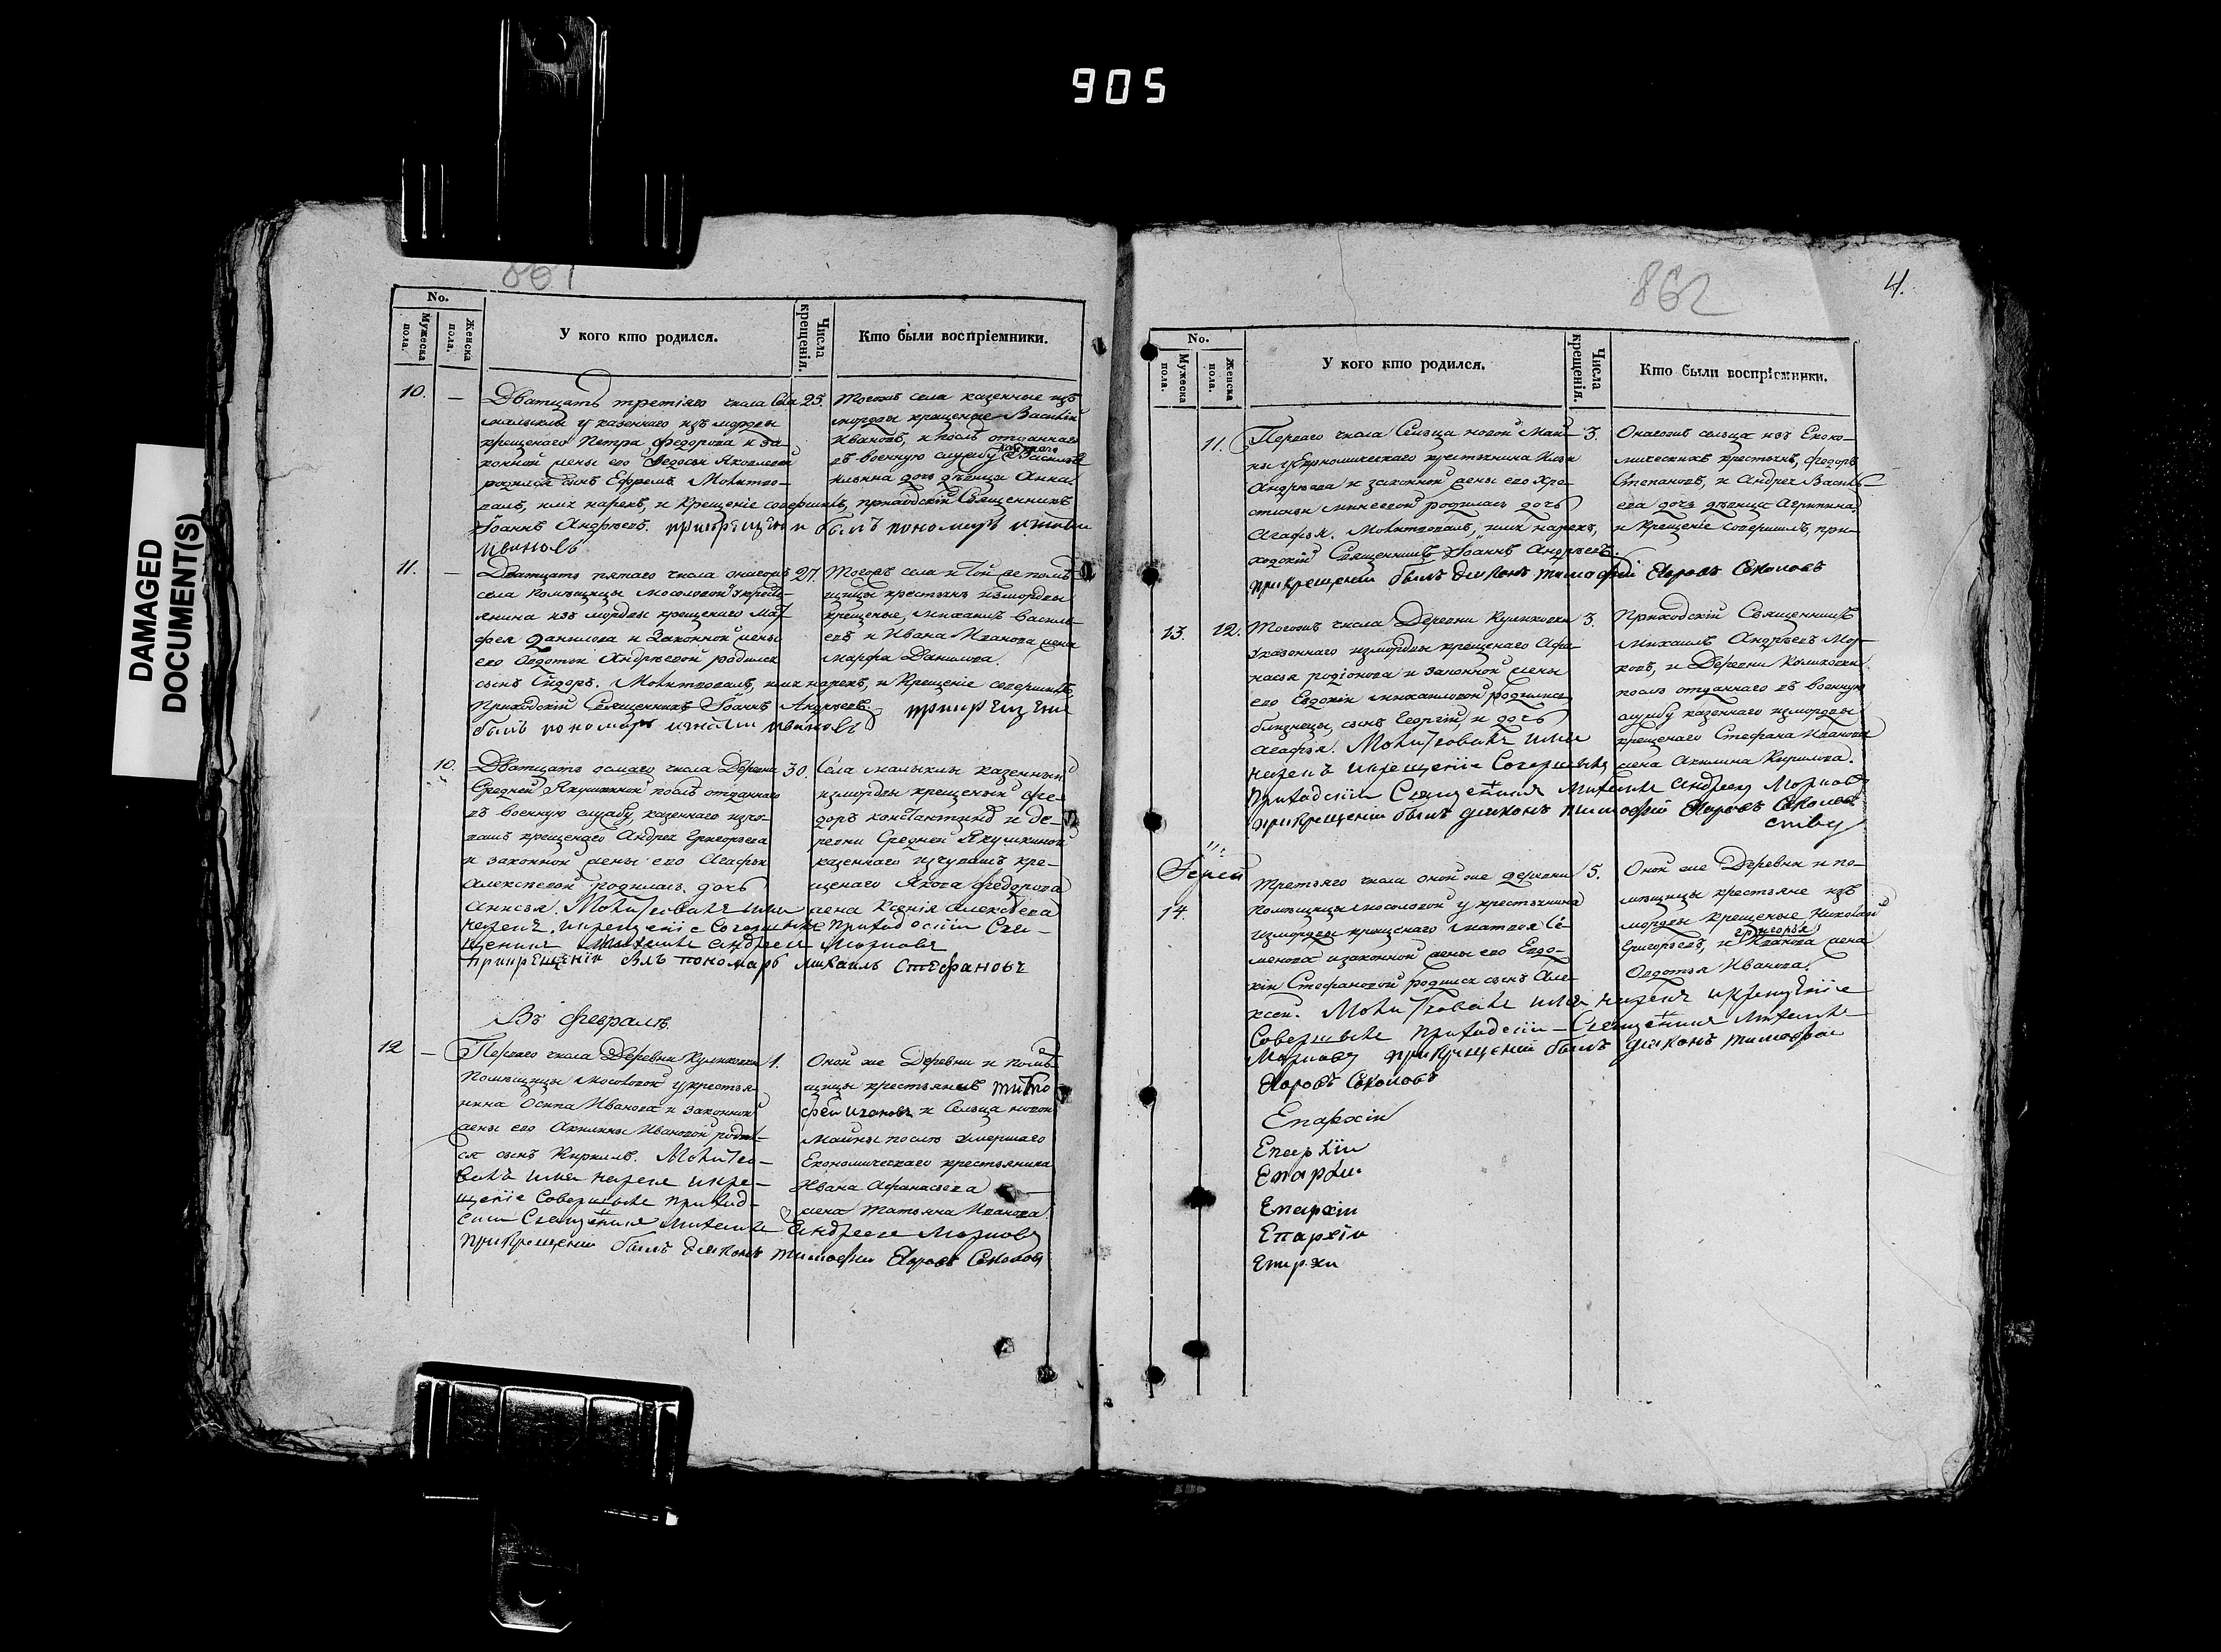 905
DAMAGED
DOCUMENT(S)
861
No.
Мужеска пола.
Женска пола.
У кого кто родился.
Числа крещенія.
Кто были воспріемники.
10. — Дватцать третіяго числа Села 25.
малыклы у казеннаго изъ мордвы
крещенаго Петра Федорова и за-
конной жены его Федосьи Яковлевой
родился сынъ Ефремъ. Молитво-
валъ, имя нарекъ, и Крещеніе совершилъ, приходскій Священникъ
Іоаннъ Андреевъ. при крещеніи былъ пономарь
Ивановъ
Тогожъ села казенные изъ
мордвы крещеные Василій
Ивановъ, и послѣ отданнаго
въ военную службу казеннаго Василья
Ильина дочь дѣвица Анна.
11. — Дватцать пятаго числа онагожъ 27.
села Помѣщицы Мосоловой у кресть-
янина изъ мордвы крещенаго Мат-
фея Данилова и Законной жены
его Авдотьи Андреевой родился
сынъ Сидоръ. Молитвовалъ, имя нарекъ, и Крещеніе совершилъ,
Приходскій Священникъ Іоаннъ Андреевъ. при крещеніи
былъ пономарь Ивановъ
Тогожъ села и той же помѣ-
щицы крестьянъ изъ мордвы
крещеные, Михаилъ Василь-
евъ и Ивана Иванова жена
Марфа Данилова.
10. Дватцать осмаго числа Деревни 30.
Средней Якушкиной послѣ отданнаго
въ военную службу, казеннаго изъ чу-
вашъ крещенаго Андрея Григорьева
и законной жены его Агафьи
Алексѣевой родилась дочь
Анисья. Молитвовалъ имя
нарекъ. и крещеніе совершилъ приходскій Свя-
щенникъ Михаилъ Андреевъ Морковъ
при крещеніи былъ пономарь Михаилъ Стефановъ
Села малыклы казенный
изъ мордвы крещеный Фе-
доръ Константиновъ и де-
ревни Средней Якушкиной
казеннаго изъ чувашъ кре-
щенаго Якова Федорова
жена Ксенія Алексѣева
Въ Февралѣ.
12 — Перваго числа Деревни Куликовки 1.
Помѣщицы Мосоловой у крестья-
нина Осипа Иванова и законной
жены его Акилины Ивановой родил-
ся сынъ Кирилъ. Молитво-
валъ имя нарекъ и кре-
щеніе совершилъ приход-
скій Священникъ Михаилъ Андреевъ Морковъ
при крещеніи былъ діаконъ Тимофей Егоровъ Соколовъ
Оной же Деревни и помѣ-
щицы крестьянинъ Тимо-
фей Ивановъ и Сельца новой
Майны послѣ умершаго
Економическаго крестьянина
Ивана Афанасьева
жена Татьяна Иванова.
862
4.
No.
Мужеска пола.
Женска пола.
У кого кто родился.
Числа крещенія.
Кто были воспріемники.
11. Перваго числа Сельца новой Май- 3.
ны у Економическаго крестьянина Ильи
Андреева и законной жены его Хре-
стиньи родилась дочь
Агафья. Молитвовалъ, имя нарекъ,
ходскій Священникъ Іоаннъ Андреевъ.
при крещеніи былъ діаконъ Тимофей Егоровъ Соколовъ
Онагожъ сельца изъ Еконо-
мическихъ крестьянъ, Федоръ
Степановъ, и Андрея Василь-
ева дочь дѣвица Агрипина,
и Крещеніе совершилъ, при-
13. 12. Тогожъ числа Деревни Куликовки 3.
у казеннаго изъ мордвы крещенаго Афа-
насья Родіонова и законной жены
его Евдокіи Михайловой родились
близнецы, сынъ Георгій, и дочь
Агафья. Молитвовалъ имя
нарекъ и крещеніе совершилъ
Приходскій Священникъ Михаилъ Андреевъ Морковъ
при крещеніи былъ діаконъ Тимофей Егоровъ Соколовъ
ству
Приходскій Священникъ
Михаилъ Андреевъ Мор-
ковъ, и Деревни Куликовки
послѣ отданнаго въ военную
службу казеннаго изъ мордвы
крещенаго Стефана Иванова
жена Акилина Кирилова.
Іерей
14. Третьяго числа оной же деревни 5.
Помѣщицы Мосоловой у крестьянина
изъ мордвы крещенаго Матвея Се-
менова и законной жены его Евдо-
кіи Стефановой родился сынъ Але-
ксей. Молитвовалъ имя нарекъ и крещеніе
совершилъ приходскій Священникъ Михаилъ
Морковъ при крещеніи былъ діаконъ Тимофей
Егоровъ Соколовъ
Оной же Деревни и по-
мѣщицы крестьяне изъ
мордвы крещеные Николай
Григорьевъ, и Григорья Иванова жена
Авдотья Иванова.
Епархіи
Епархіи
Епархіи
Епархіи
Епархіи
Епархи